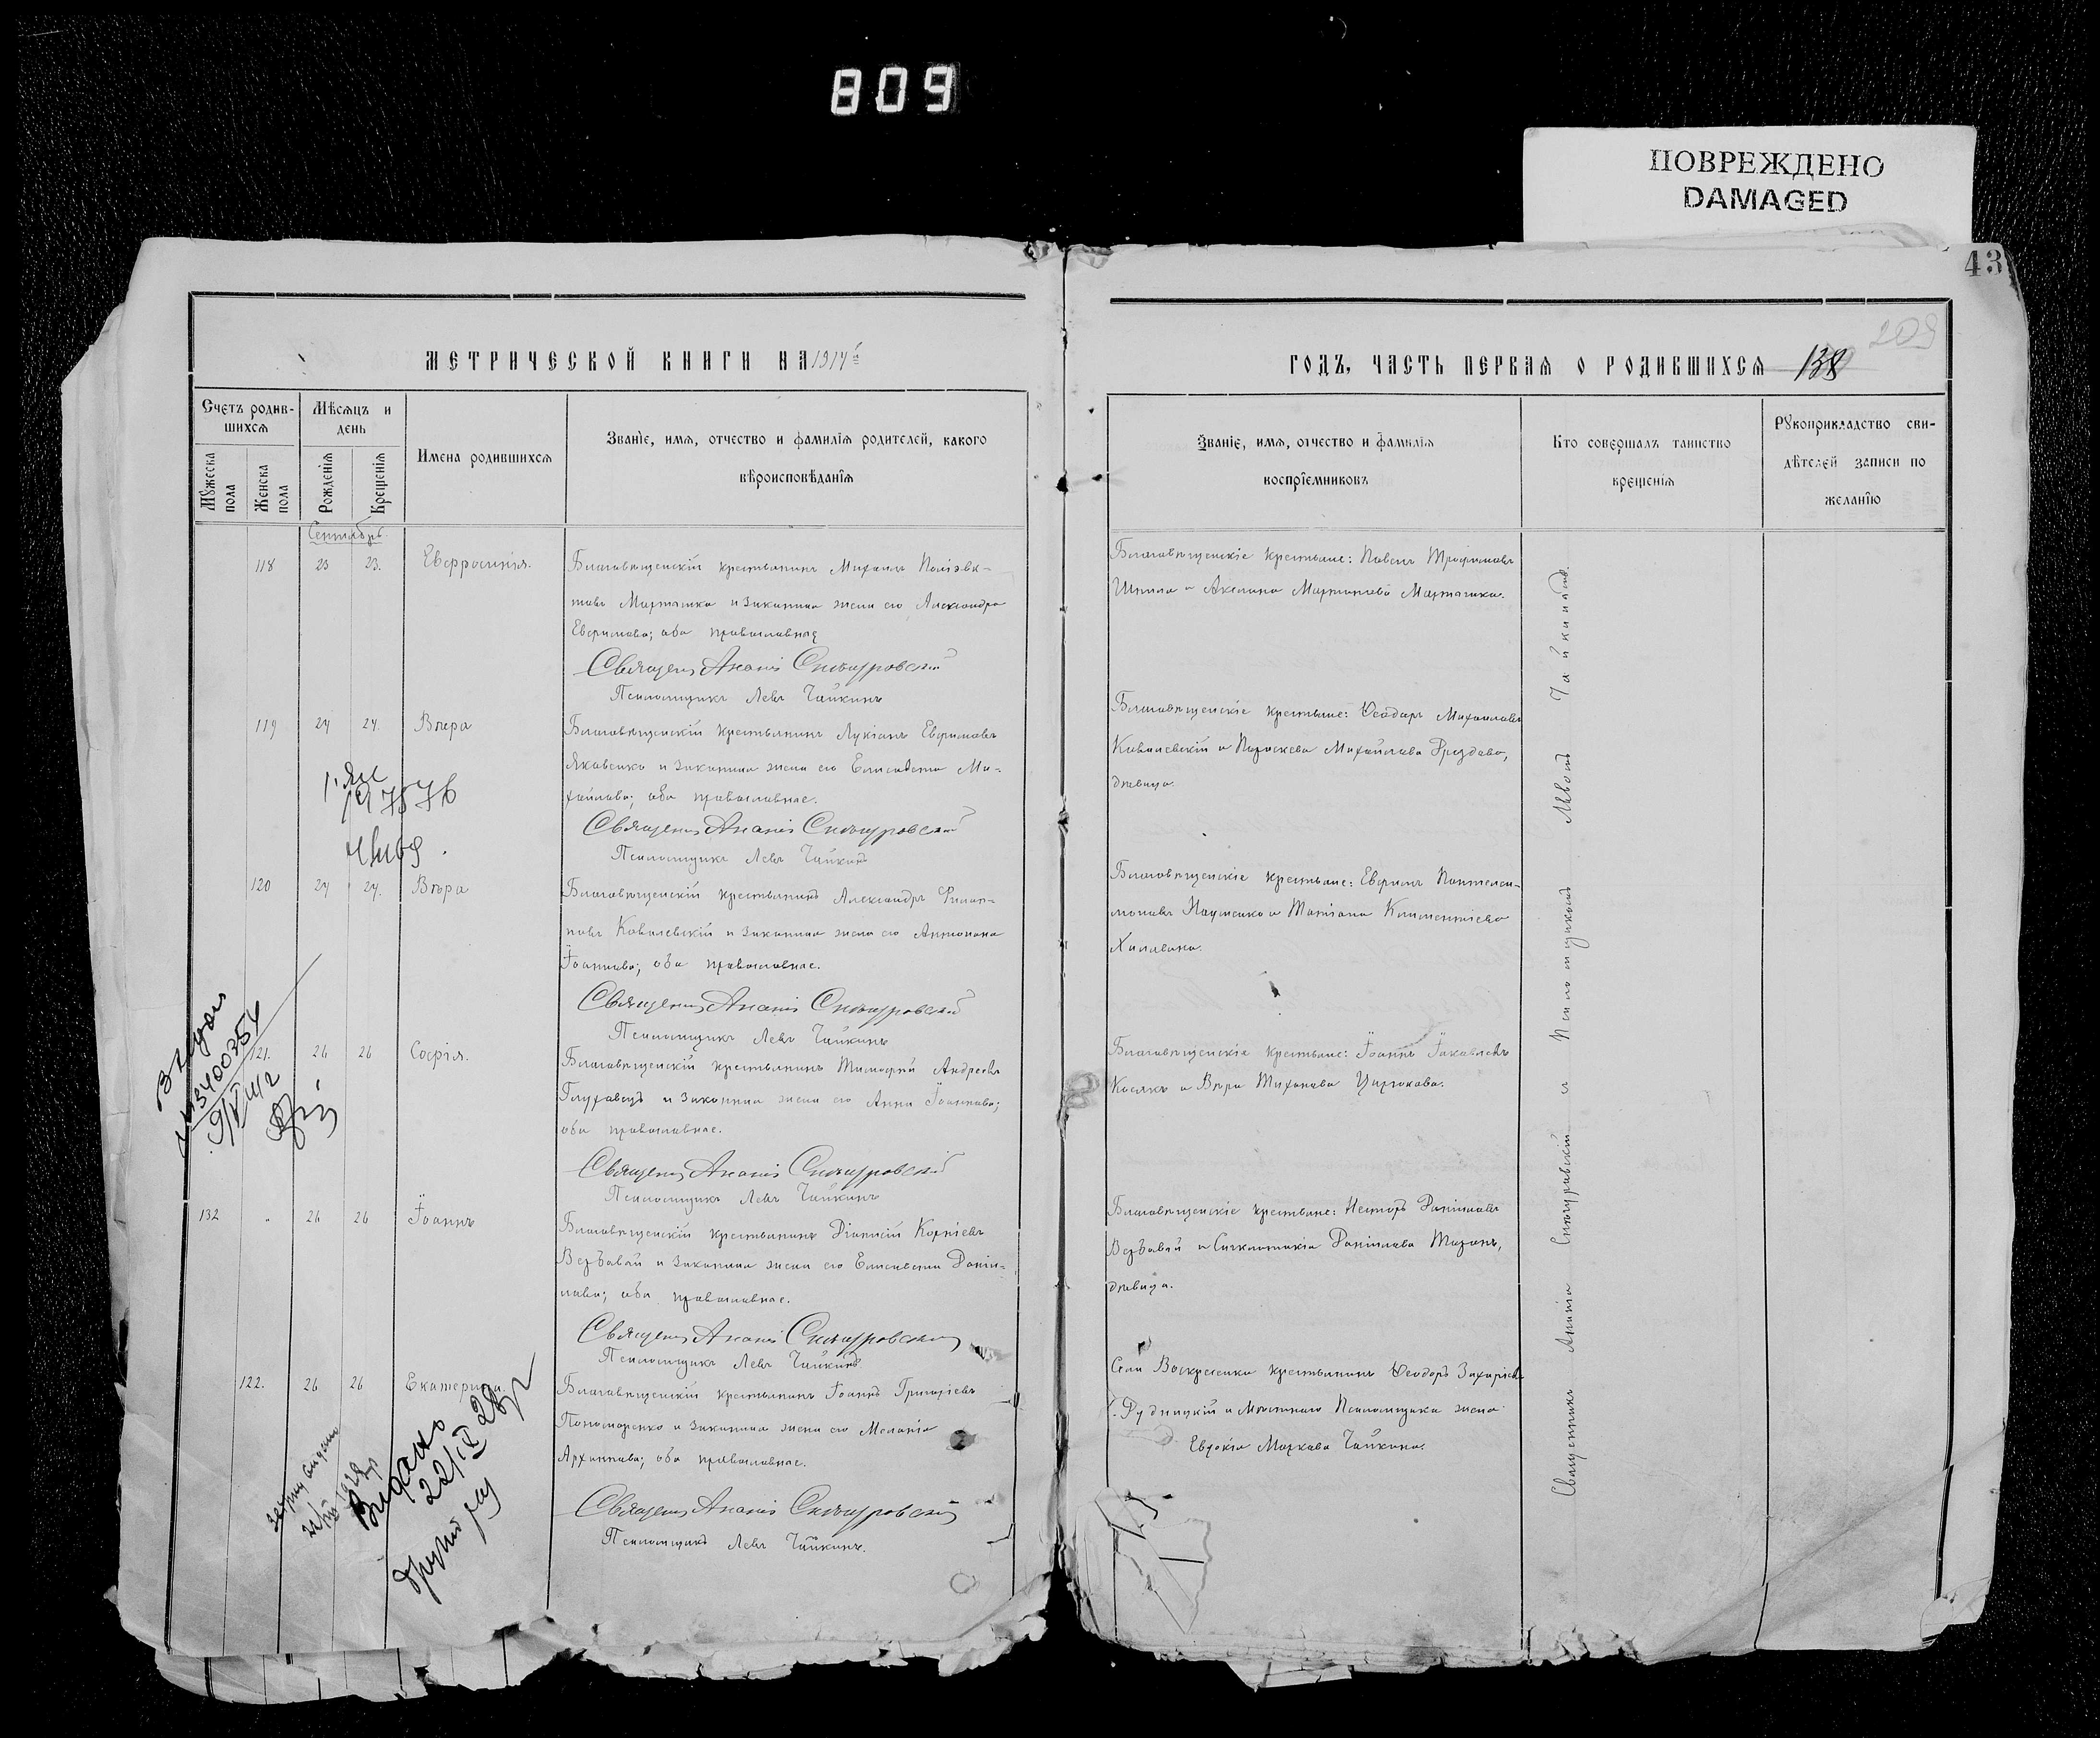 809
ПОВРЕЖДЕНО
DAMAGED
43
209
МЕТРИЧЕСКОЙ КНИГИ НА 1914 й
ГОДЪ, ЧАСТЬ ПЕРВАЯ О РОДИВШИХСЯ 138
Счетъ родив-
шихся
Мужеска пола
Женска пола
Мѣсяцъ и
день
Рожденія
Крещенія
Имена родившихся
Званіе, имя, отчество и фамилія родителей, какого
вѣроисповѣданія
Званіе, имя, отчество и фамилія
воспріемниковъ
Кто совершалъ таинство
крещенія
Рукоприкладство сви-
дѣтелей записи по
желанію
Сентябрь
118 23 23. Евфросинія.
Благовѣщенскій крестьянинъ Михаилъ Поліэвк-
товъ Мартышко и законная жена его Александра
Евфимова; оба православные
Священ. Ананія Снѣгуровскій
Псаломщикъ Левъ Чайкинъ
Благовѣщенскіе крестьяне: Павелъ Трофимовъ
Шпыло и Акилина Мартинова Мартышко.
119 24 24. Вѣра
Благовѣщенскій крестьянинъ Лукіанъ Евфимовъ
Яковенко и законная жена его Елисавета Ми-
хайлова; оба православные.
Священ. Ананія Снѣгуровскій
Псаломщикъ Левъ Чайкинъ
Благовѣщенскіе крестьяне: Ѳеодоръ Михаиловъ
Ковалевскій и Параскева Михайлова Дроздова,
дѣвица.
120 24 24. Вѣра
Благовѣщенскій крестьянинъ Александръ Филип-
повъ Ковалевскій и законная жена его Антонина
Іоаннова; оба православные.
Священ. Ананія Снѣгуровскій
Псаломщикъ Левъ Чайкинъ
Благовѣщенскіе крестьяне: Евфимъ Пантелеи-
моновъ Науменко и Татіана Климентіева
121. 26 26 Софія.
Благовѣщенскій крестьянинъ Тимофей Андреевъ
Глуховецъ и законная жена его Анна Іоаннова;
оба православные.
Священ. Ананія Снѣгуровскій
Псаломщикъ Левъ Чайкинъ
Благовѣщенскіе крестьяне: Іоаннъ Іаковлевъ
Косякъ и Вѣра Тихонова
132 " 26 26 Іоаннъ
Благовѣщенскій крестьянинъ Діонисій Корніевъ
Вербовый и законная жена его Елисавета Даніи-
лова; оба православные.
Священ. Ананія Снѣгуровскій
Псаломщикъ Левъ Чайкинъ
Благовѣщенскіе крестьяне: Несторъ Даніиловъ
Вербовый и Синклитикія Даніилова Таранъ,
дѣвица.
122. 26 26 Екатерина.
Благовѣщенскій крестьянинъ Іоаннъ Григоріевъ
Пономаренко и законная жена его Меланія
Архиппова; оба православные.
Священ. Ананія Снѣгуровскій
Псаломщикъ Левъ Чайкинъ.
Села Воскресенки крестьянинъ Ѳеодоръ Захаріевъ
Рудницкій и Мѣстнаго Псаломщика жена
Евдокія Маркова Чайкина.
Священникъ Ананія Снѣгуровскій и Псаломщикъ Левъ Чайкинъ.
Видано
22/IV 28 р
другий раз